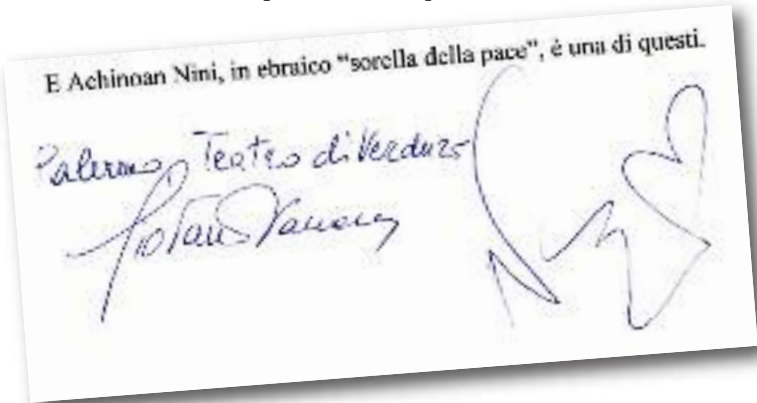 E Achinoan Nini, in ebraico "sorella della pace", è una di questi.
Palermo, Teatro di Verdura